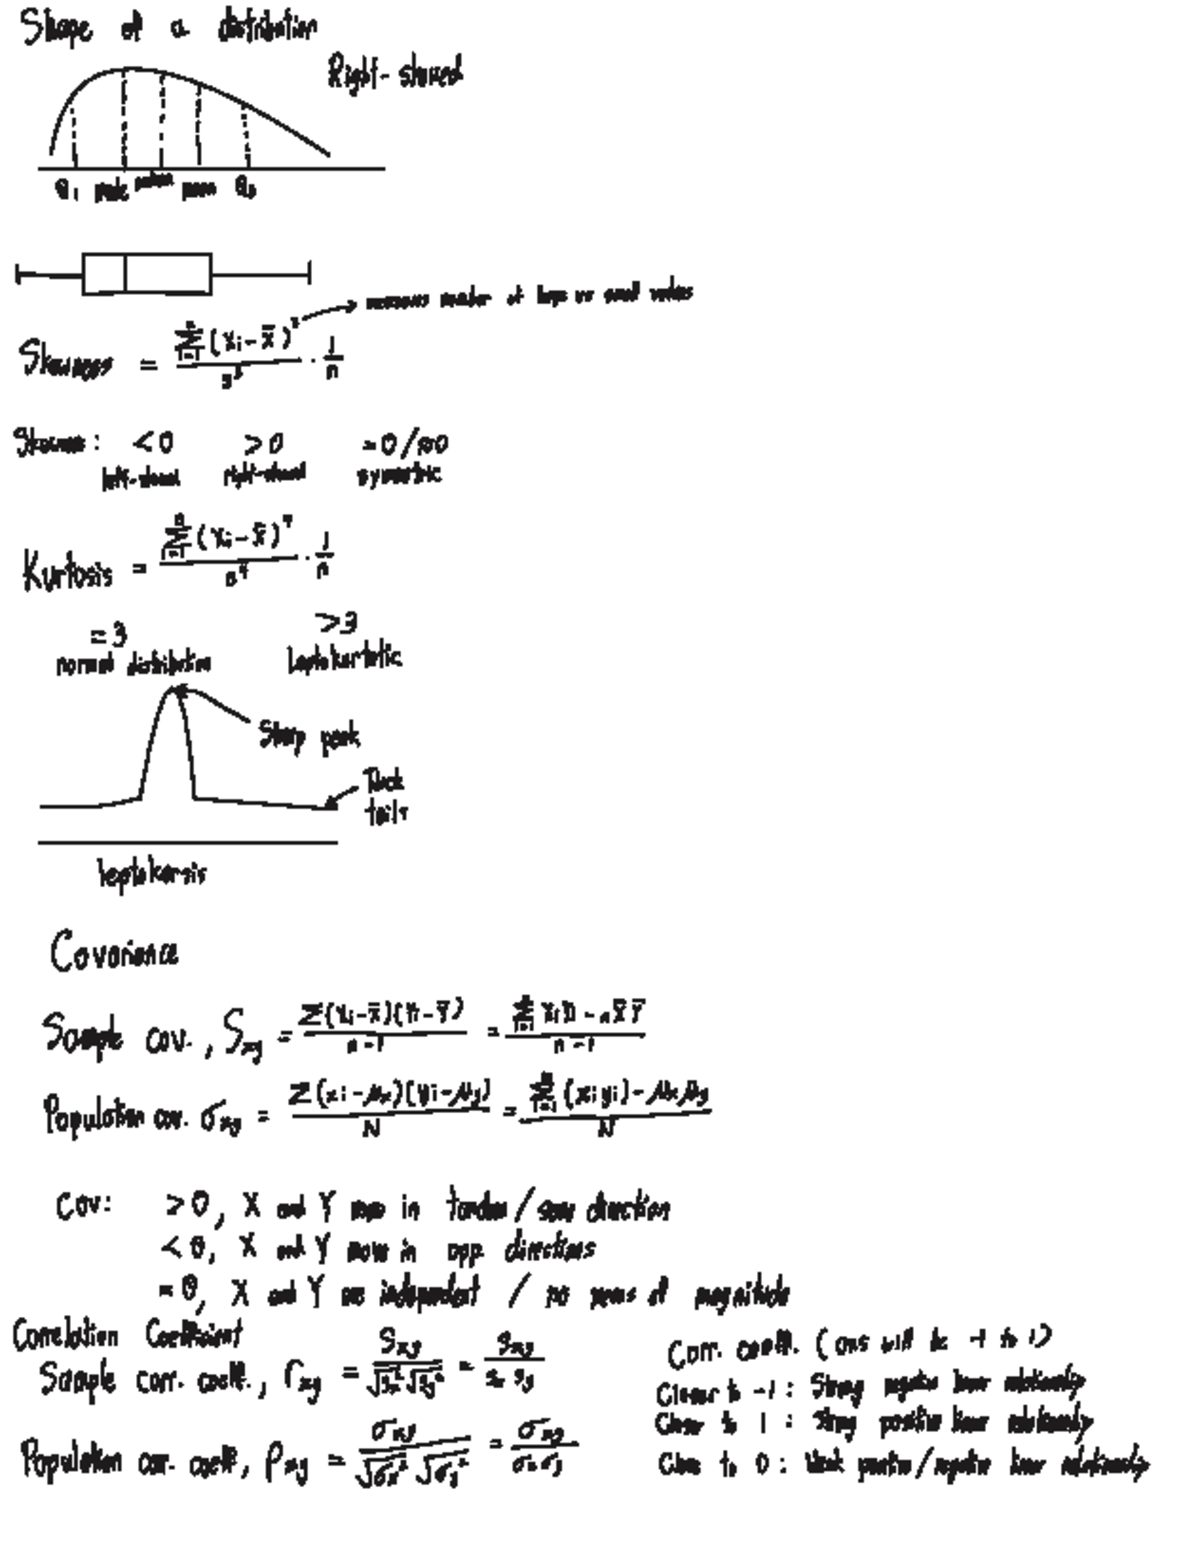 Shape of a distribution
Right-skewed
Q₁ mode median mean Q₃
measures number of large vs small values
Skewness = \frac{\sum_{i=1}^{n}(x_i-\bar{x})^3}{s^3} · \frac{1}{n}
Skewness: <0 >0 =0/≈0
left-skewed right-skewed symmetric
Kurtosis = \frac{\sum_{i=1}^{n}(x_i-\bar{x})^4}{s^4} · \frac{1}{n}
=3 >3
normal distribution Leptokurtotic
Sharp peak
Thick
tails
leptokursis
Covariance
Sample cov., S_{xy} = \frac{\sum(x_i-\bar{x})(Y_i-\bar{Y})}{n-1} = \frac{\sum_{i=1}^{n} X_iY_i - n\bar{X}\bar{Y}}{n-1}
Population cov. σ_{xy} = \frac{\sum(x_i-μ_x)(y_i-μ_y)}{N} = \frac{\sum_{i=1}^{n}(x_iy_i)-μ_xμ_y}{N}
Cov: >0, X and Y move in tandem/same direction
<0, X and Y move in opp. directions
=0, X and Y are independent / no means of magnitude
Correlation Coefficient
Sample corr. coeff., r_{xy} = \frac{S_{xy}}{\sqrt{S_x^2}\sqrt{S_y^2}} = \frac{S_{xy}}{S_x S_y}
Population corr. coeff, ρ_{xy} = \frac{σ_{xy}}{\sqrt{σ_x^2}\sqrt{σ_y^2}} = \frac{σ_{xy}}{σ_x σ_y}
Corr. coeff. (ans will be -1 to 1)
Closer to -1: Strong negative linear relationship
Closer to 1: Strong positive linear relationship
Close to 0: Weak positive/negative linear relationship